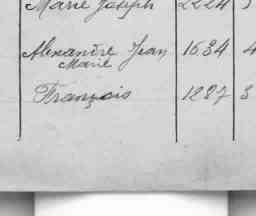 Marie Joseph 2224 3
Alexandre Jean 1634 4
Marie
François 1287 3